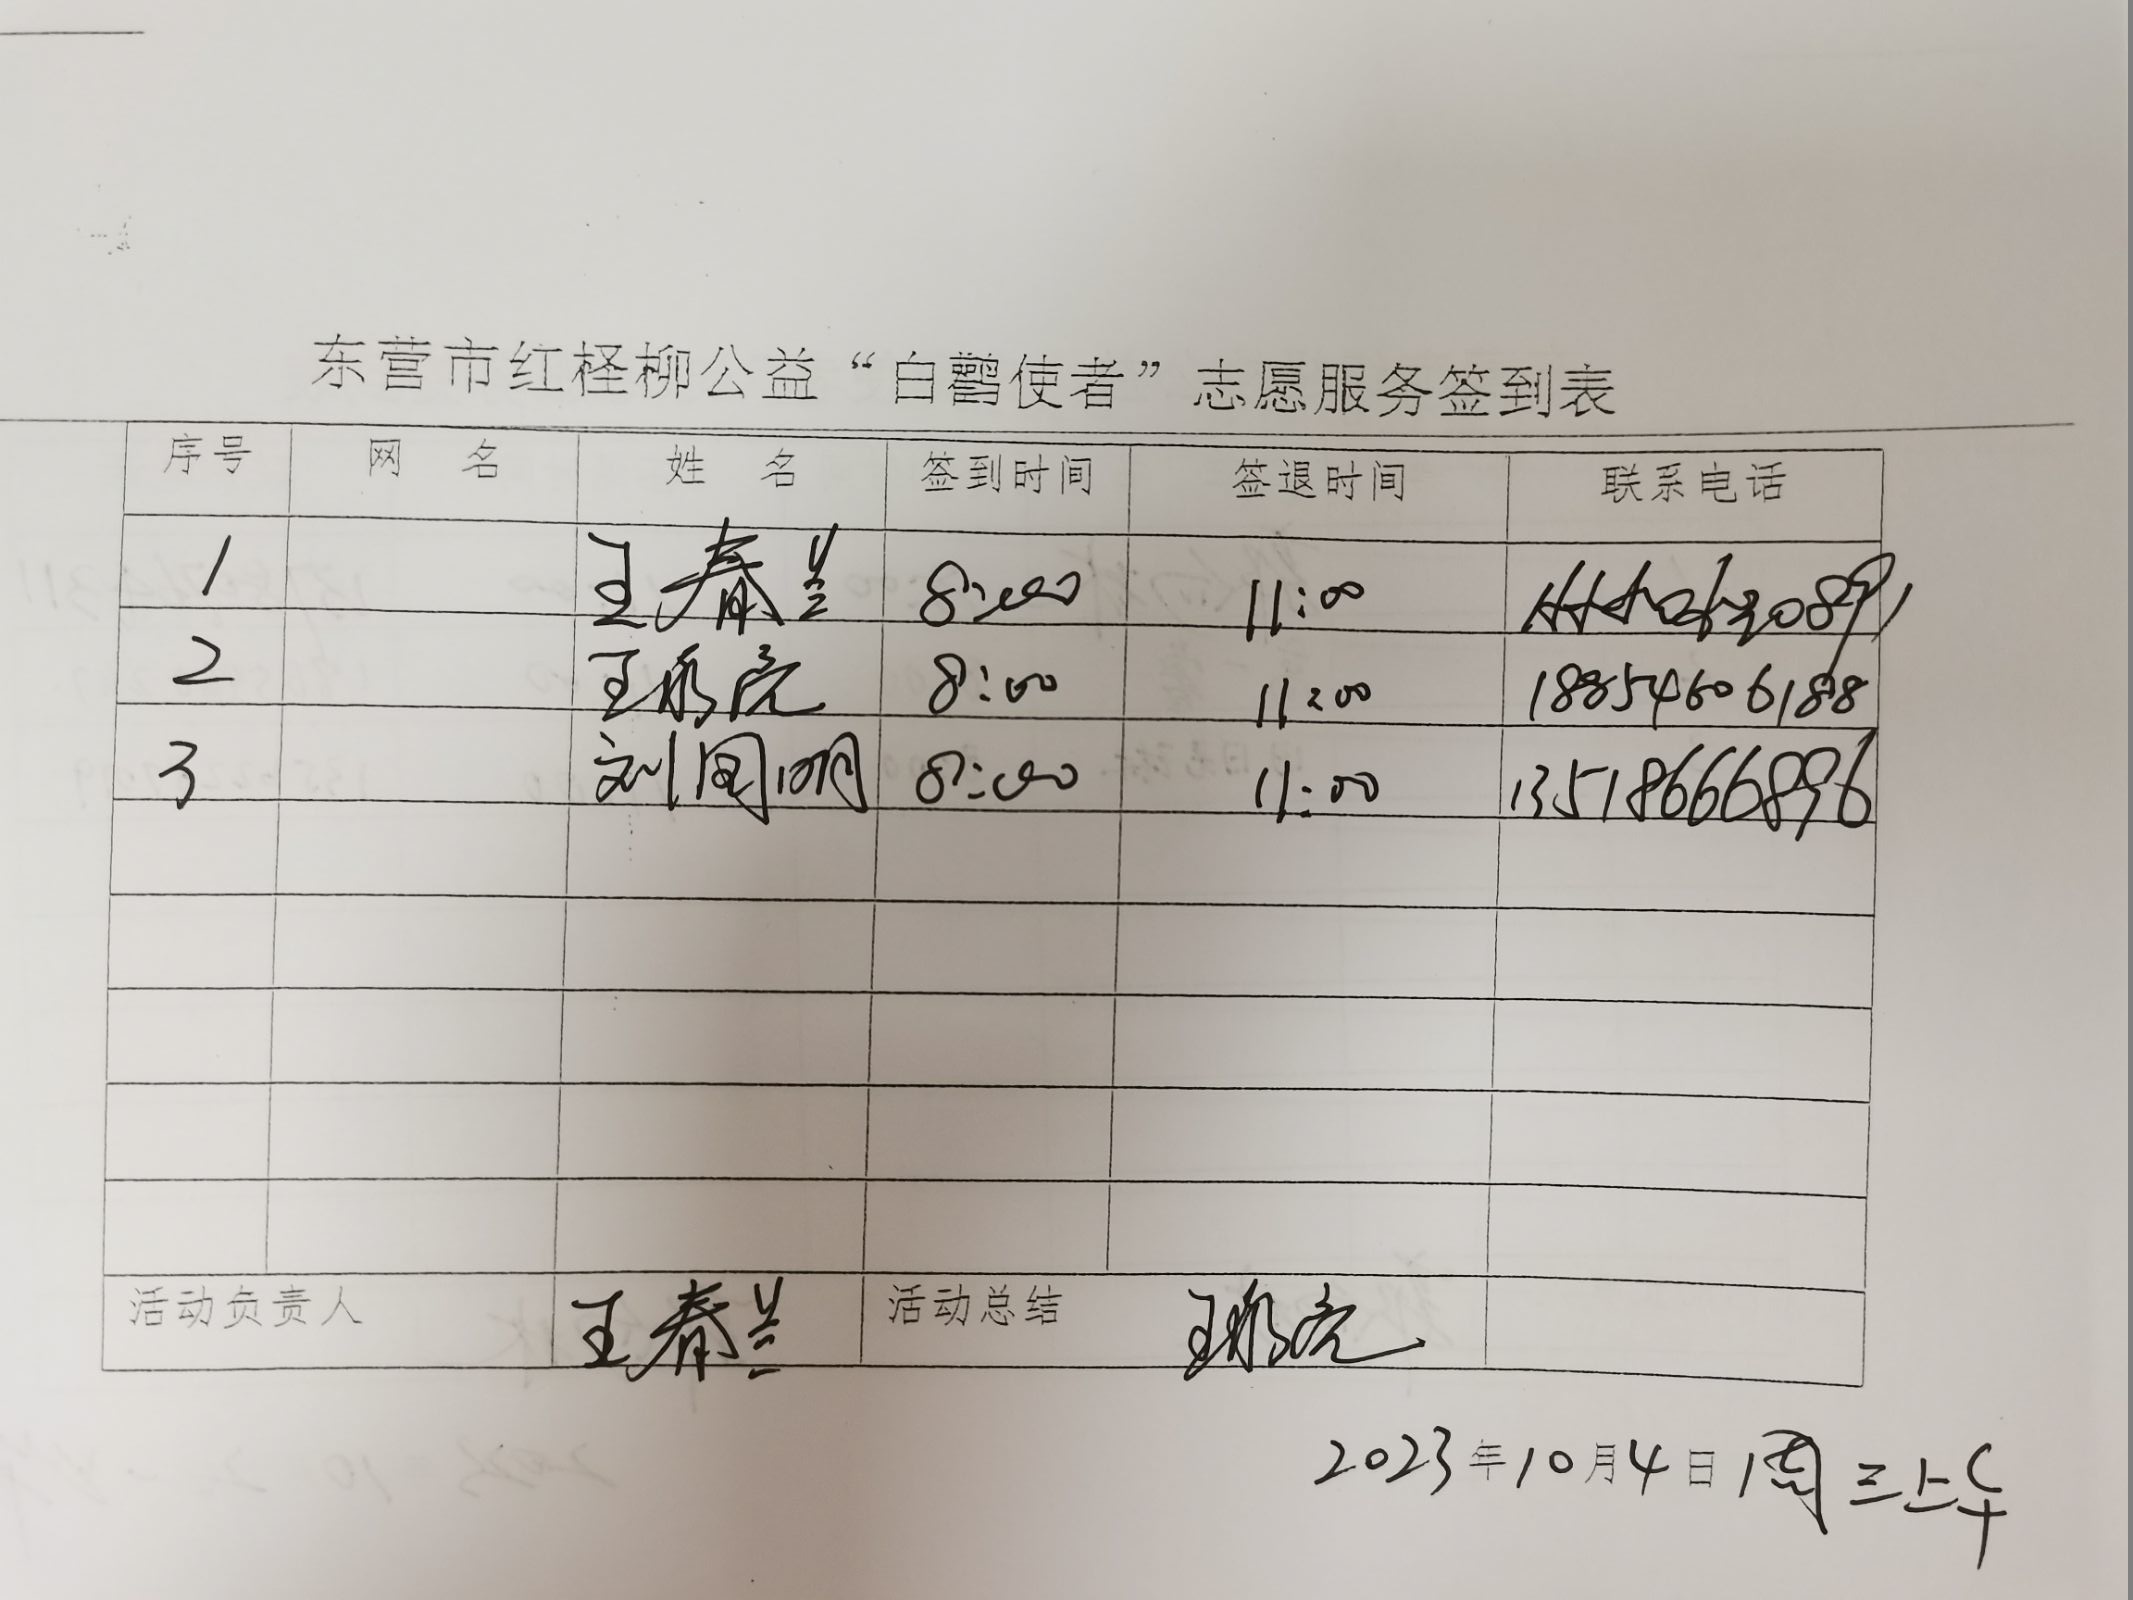 东营市红柽柳公益“白鹳使者”志愿服务签到表
序号 网 名 姓 名 签到时间 签退时间 联系电话
1 王春兰 8:00 11:00
2 王 亮 8:00 11:00 18854606188
3 刘国明 8:00 11:00 13518666896
活动负责人 王春兰 活动总结 王 亮
2023年10月4日 周三上午